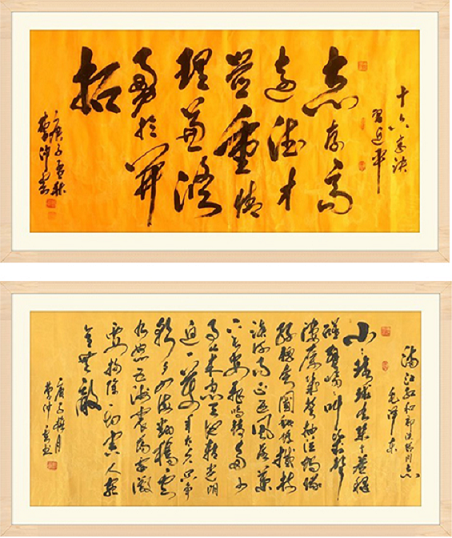 十六字诀
習近平
志存高
远德才
並重情
理兼修
勇於开
拓
庚子
满江红和郭沫若同志
毛泽东
小小寰球有几个苍蝇碰
壁嗡嗡叫几声
凄厉几声抽泣蚂蚁缘
槐夸大国蚍蜉撼树
谈何易正西风落叶
下长安飞鸣镝多少
事从来急天地转光阴
迫一万年太久只争
朝夕四海翻腾云
水怒五洲震荡风雷激
要扫除一切害人虫
全无敌
庚子